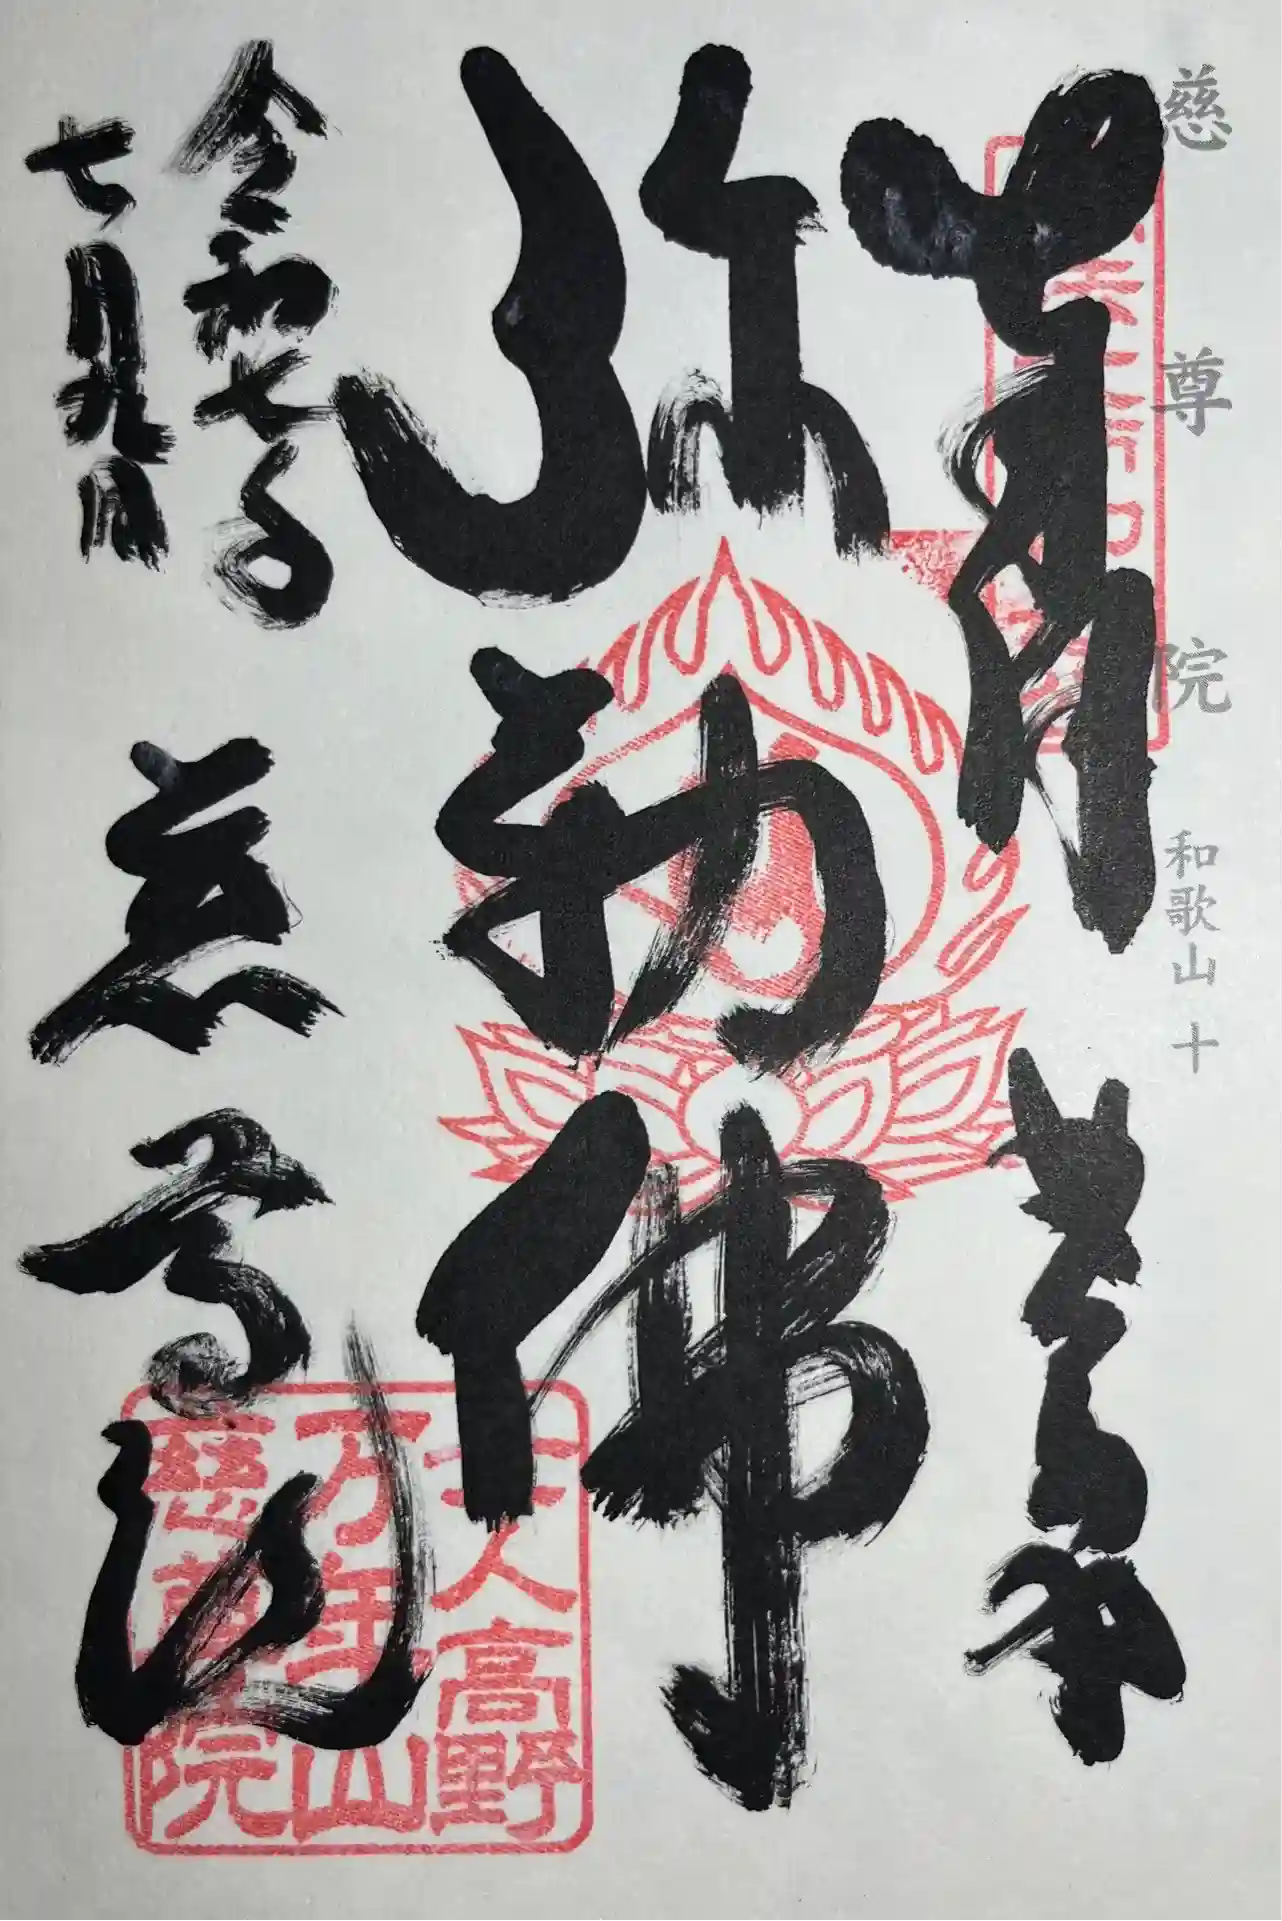 慈尊院 和歌山 十
奉拝
弥勒佛
令和七年
七月九日
慈尊院
女人高野
万年山
慈尊院